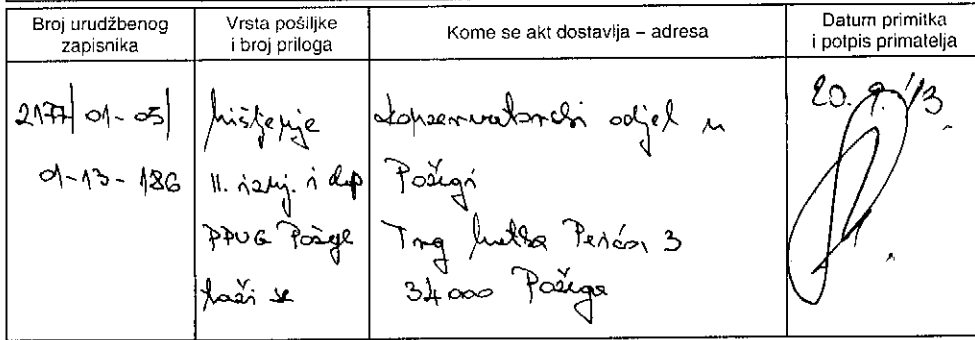 Broj urudžbenog zapisnika
Vrsta pošiljke i broj priloga
Kome se akt dostavlja – adresa
Datum primitka i potpis primatelja
2177/01-05/
01-13-186
Mišljenje
II. izmj. i dop
PPUG Požege
traži se
Konzervatorski odjel u
Požegi
Trg Matka Peića 3
34000 Požega
20. 9. '13